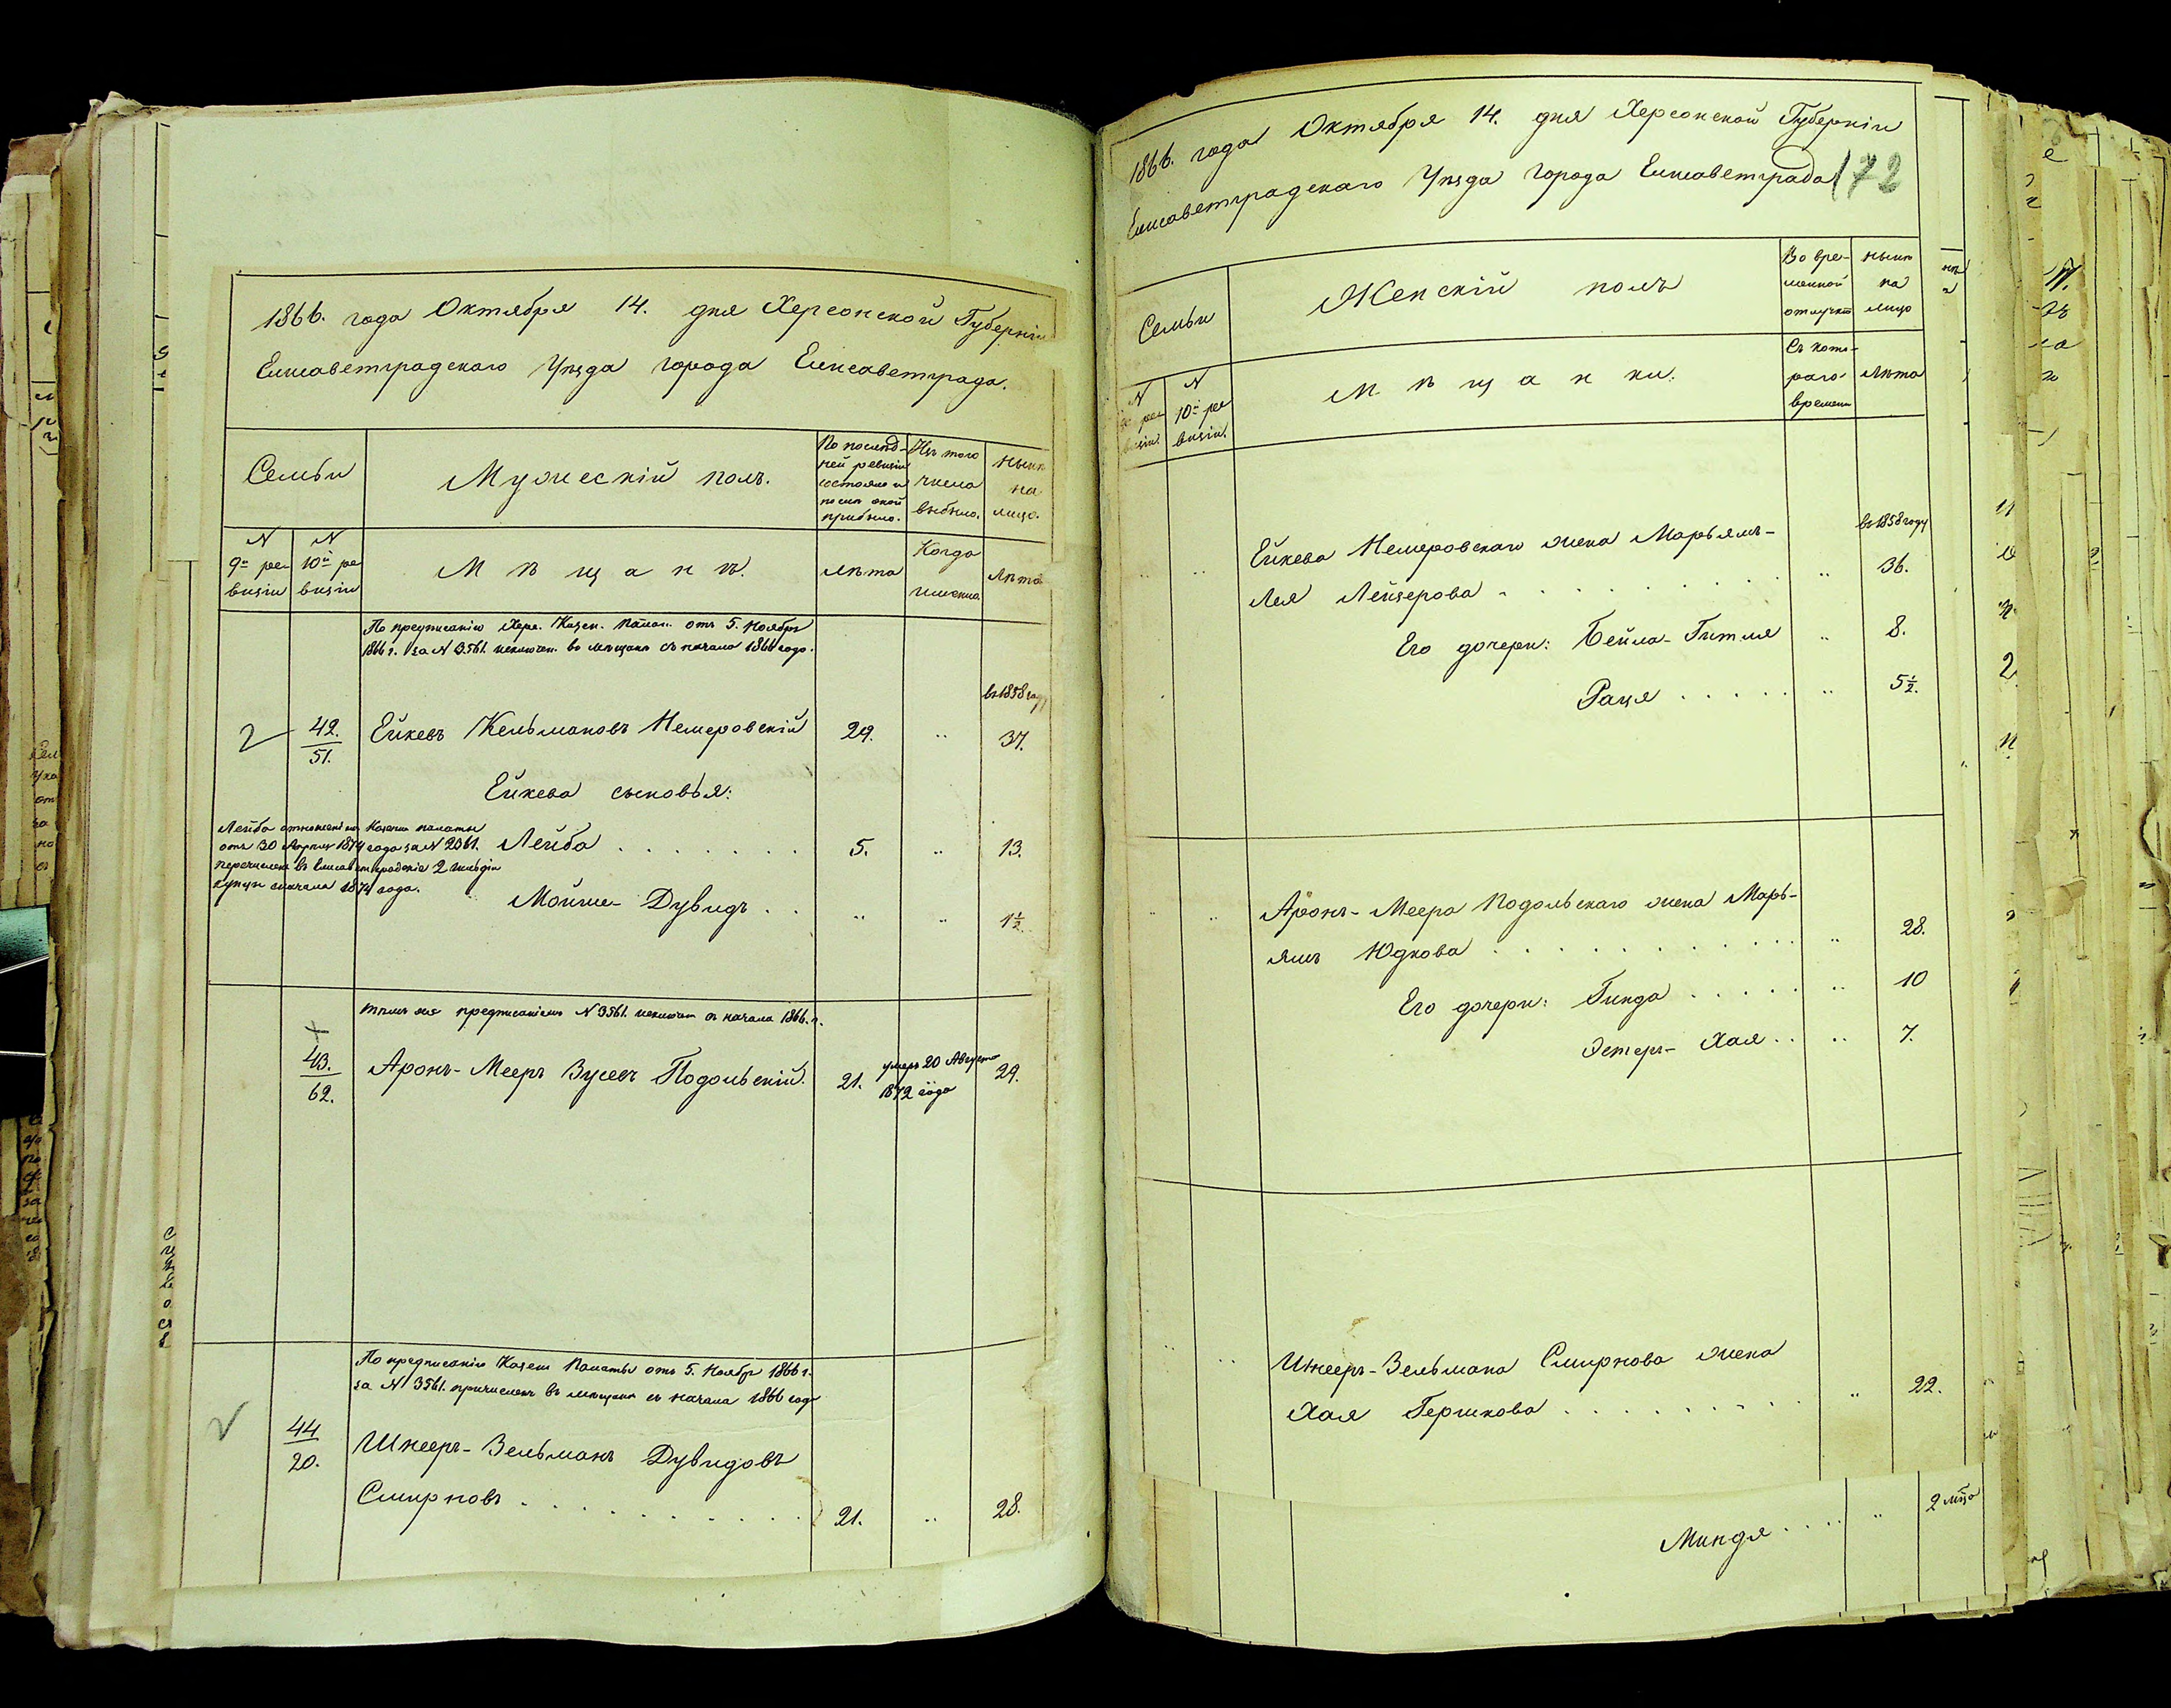 1866. года Октября 14. дня Херсонской Губерніи
Елисаветградскаго Уѣзда города Елисаветграда.
Семьи
Мужескій полъ.
По послѣд-
ней ревизіи
состояло и
послѣ оной
прибыло.
Изъ того
числа
выбыло.
Нынѣ
на
лицо.
N
9й ре-
визіи
N
10й ре
визіи
Мѣщанѣ.
Лѣта
Когда
именно
Лѣта
По предписанію Херс. Казен. Палат. отъ 5. Ноября
1866 г. за N 3561. исключен. въ мѣщане съ начала 1866 года.
въ 1858 году
2
42.
51.
Ейкевъ Кельмановъ Немеровскій
29.
"
37.
Ейкева сыновья:
Лейба отношеніемъ Казенн палаты
отъ 30 Апрѣля 1874 года за N 2361.
перечисленъ въ Елисаветградскіе 2 гильдіи
купцы сначала 1874 года.
Лейба . . . . . . . .
5.
"
13.
Мойше-Дувидъ . .
"
"
1½.
тѣмъ же предписаніемъ N 3561. исключен съ начала 1866. г.
43.
62.
Аронъ-Мееръ Зусевъ Подольскій.
21.
умеръ 20 Августа
1872 года
29.
По предписанію Казен Палаты отъ 5. Ноябр 1866 г.
за N 3561. причисленъ въ мѣщане съ начала 1866 года
44
20.
Шнееръ-Зельманъ Дувидовъ
Смирновъ . . . . . . . . .
21.
"
28.
1866. года Октября 14. дня Херсонской Губерніи
Елисаветградскаго Уѣзда города Елисаветграда
172
Семьи
Женскій полъ
Во вре-
менной
отлучкѣ
нынѣ
на
лицо
N
9й ре
визіи.
N
10й ре
визіи.
Мѣщанки.
Съ кото-
раго
времени
Лѣта
въ 1858 году
Ейкева Немеровскаго жена Марьямъ-
Лея Лейзерова . . . . . . . .
"
36.
Его дочери: Бейла-Гитля
"
8.
Рася . . . . .
"
5½.
Аронъ-Меера Подольскаго жена Марь-
ямъ Юдкова . . . . . . . . . .
"
28.
Его дочери: Гинда . . . . .
"
10
Эстеръ-Хая . .
"
7.
Шнееръ-Зельмана Смирнова жена
Хая Гершкова . . . . . . . . .
"
22.
Миндя . . . .
"
2 мѣся